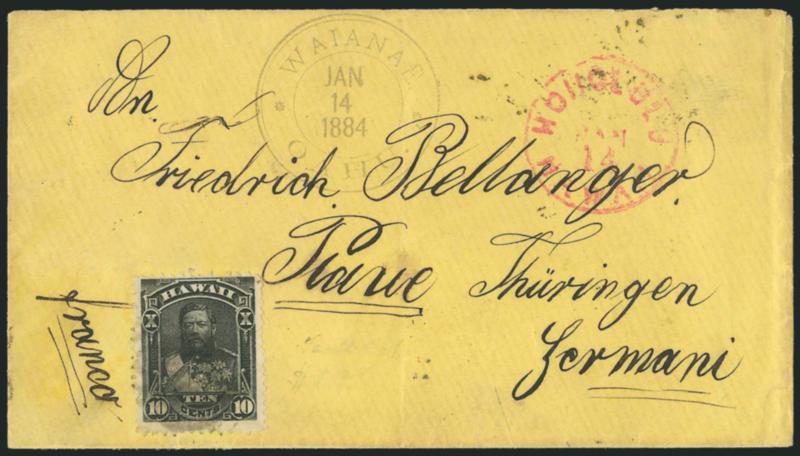 WAIANAE
JAN
14
1884
HONOLULU
JAN
14
Dr.
Friedrich Bellanger.
Plaue Thüringen
Germani
franco
HAWAII
X X
10 TEN 10
CENTS